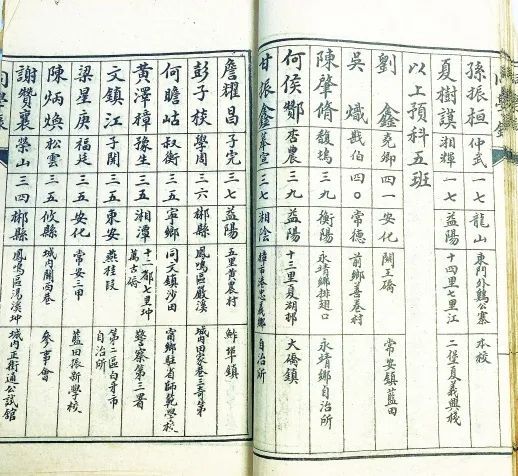 孫振桓 仲武 一七 龍山 東門外鷄公寨 本校
夏樹謨 湘輝 一七 益陽 十四里七里江 二堡夏義興棧
以上預科五班
劉鑫 克卿 四一 安化 關王橋 常安鎮藍田
吳熾 戡伯 四〇 常德 前鄉善卷村
陳肇脩 馥塢 三九 衡陽 永靖鄉排翅口 永靖鄉自治所
何侯酇 杏農 三九 益陽 十三里夏湖邨 大橋鎮
甘振鑫 三七 湘陰 自治所
詹耀昌 子完 三七 益陽 五里黃農村 鮓埠鎮
彭子校 學周 三六 郴縣 鳳鳴區嚴溪 城內田家巷三奇第
何瞻岵 叔衡 三五 寧鄉 同文鎮沙田 甯鄉駐省師範學校
黃澤樟 豫生 三五 湘潭 十二都七里坤萬古橋 警察第三署
文鎮江 子開 三五 東安 燕桂段 第二區白牙市自治所
梁星庚 福廷 三五 安化 常安三甲 藍田振新學校
陳炳煥 松雲 三五 攸縣 城內關西巷 參事會
謝贊襄 榮山 三四 郴縣 鳳鳴區湯溪坤 城內正街通公試館
同學錄